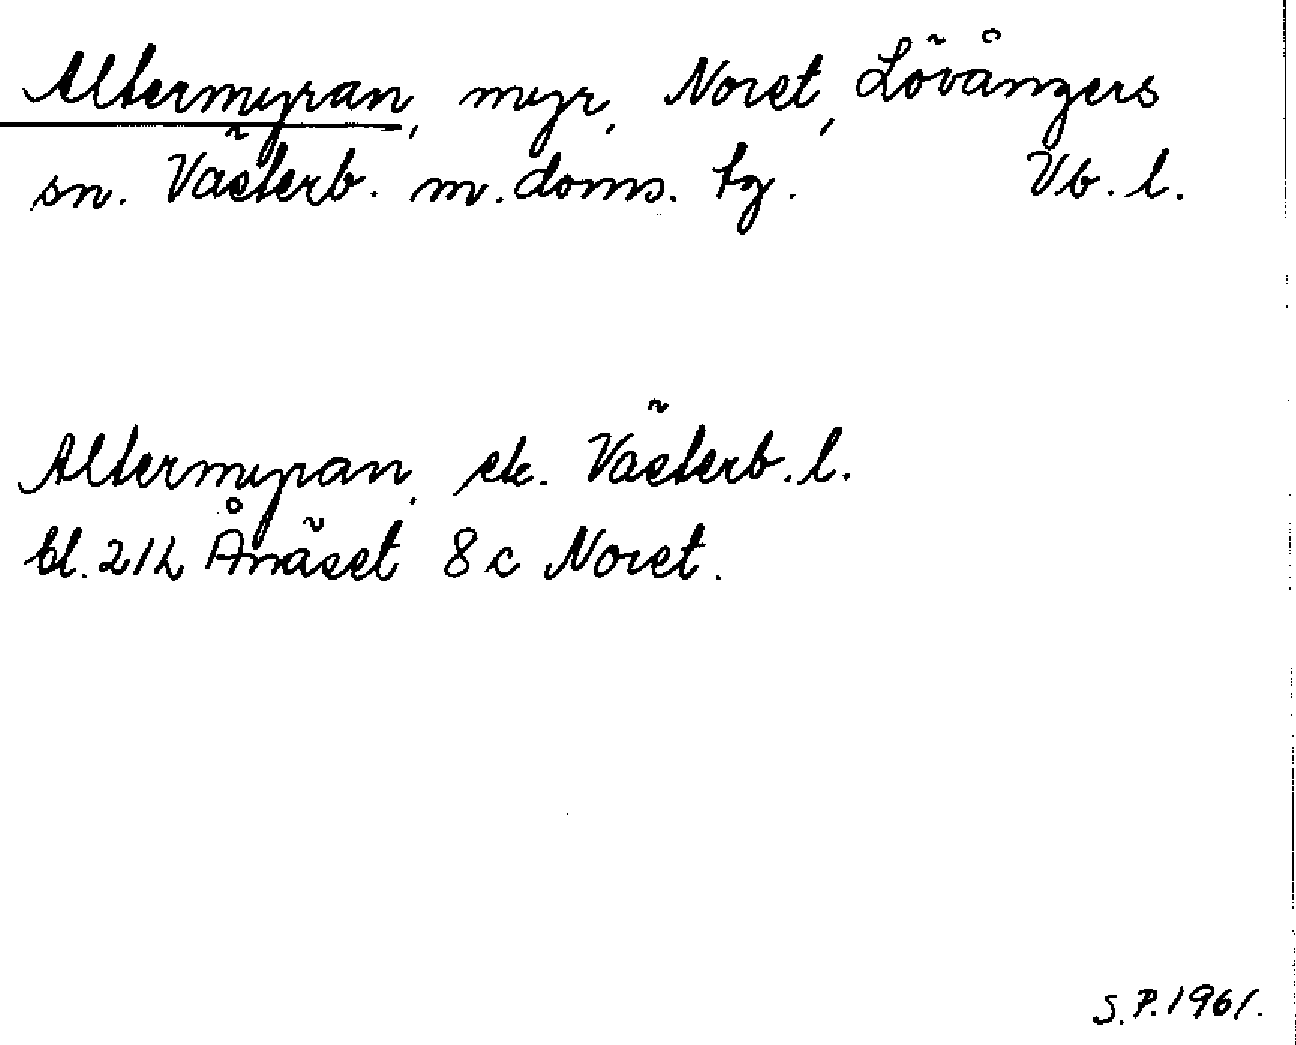 Altermyran, myr, Noret, Lövångers
sn. Västerb. m. doms. tg. Vb. l.
Altermyran, ek. Västerb. l.
bl. 21L Ånäset 8c Noret.
S.P. 1961.